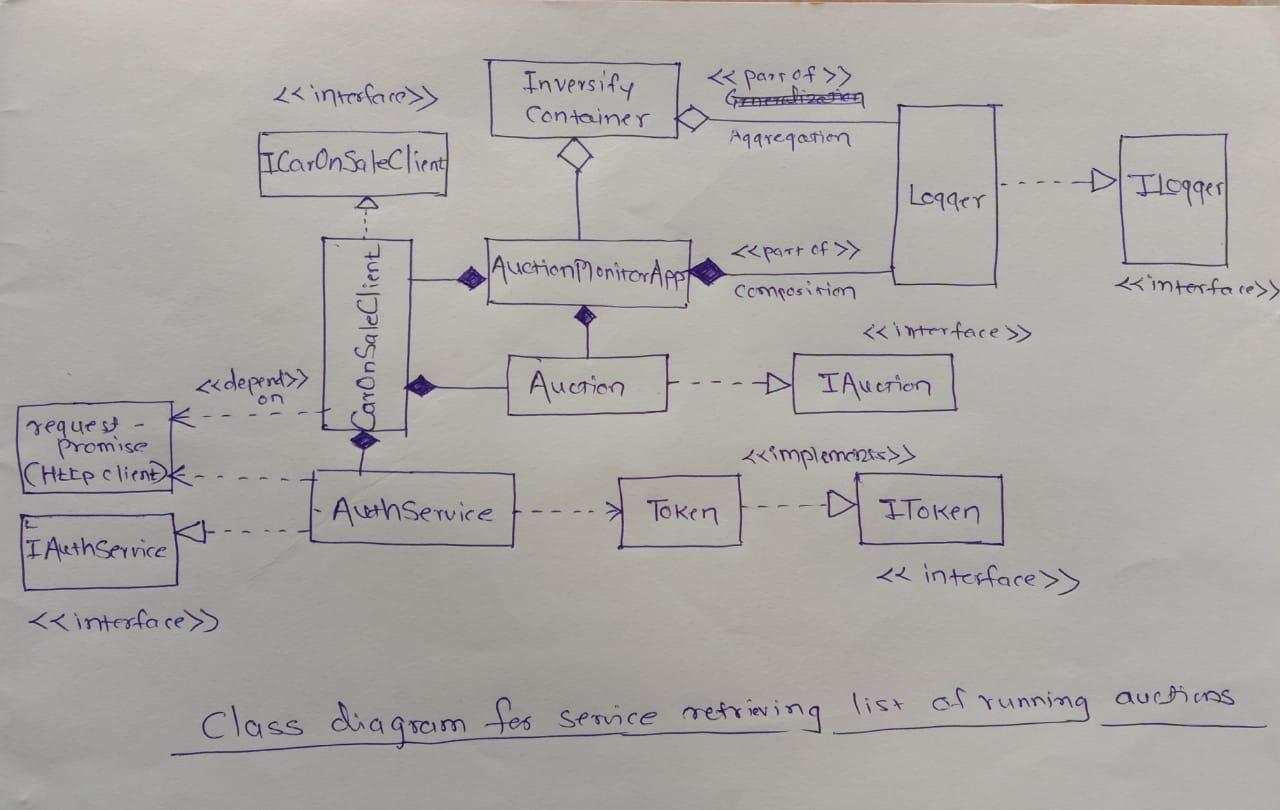 <<interface>>
ICarOnSaleClient
Inversify
Container
<<part of>>
Generalization
Aggregation
Logger
ILogger
<<interface>>
CarOnSaleClient
AuctionMonitorApp
<<part of>>
composition
<<interface>>
Auction
IAuction
<<depend>>
on
request-
promise
(Http client)
<<implements>>
AuthService
Token
IToken
IAuthService
<<interface>>
<<interface>>
Class diagram for service retrieving list of running auctions